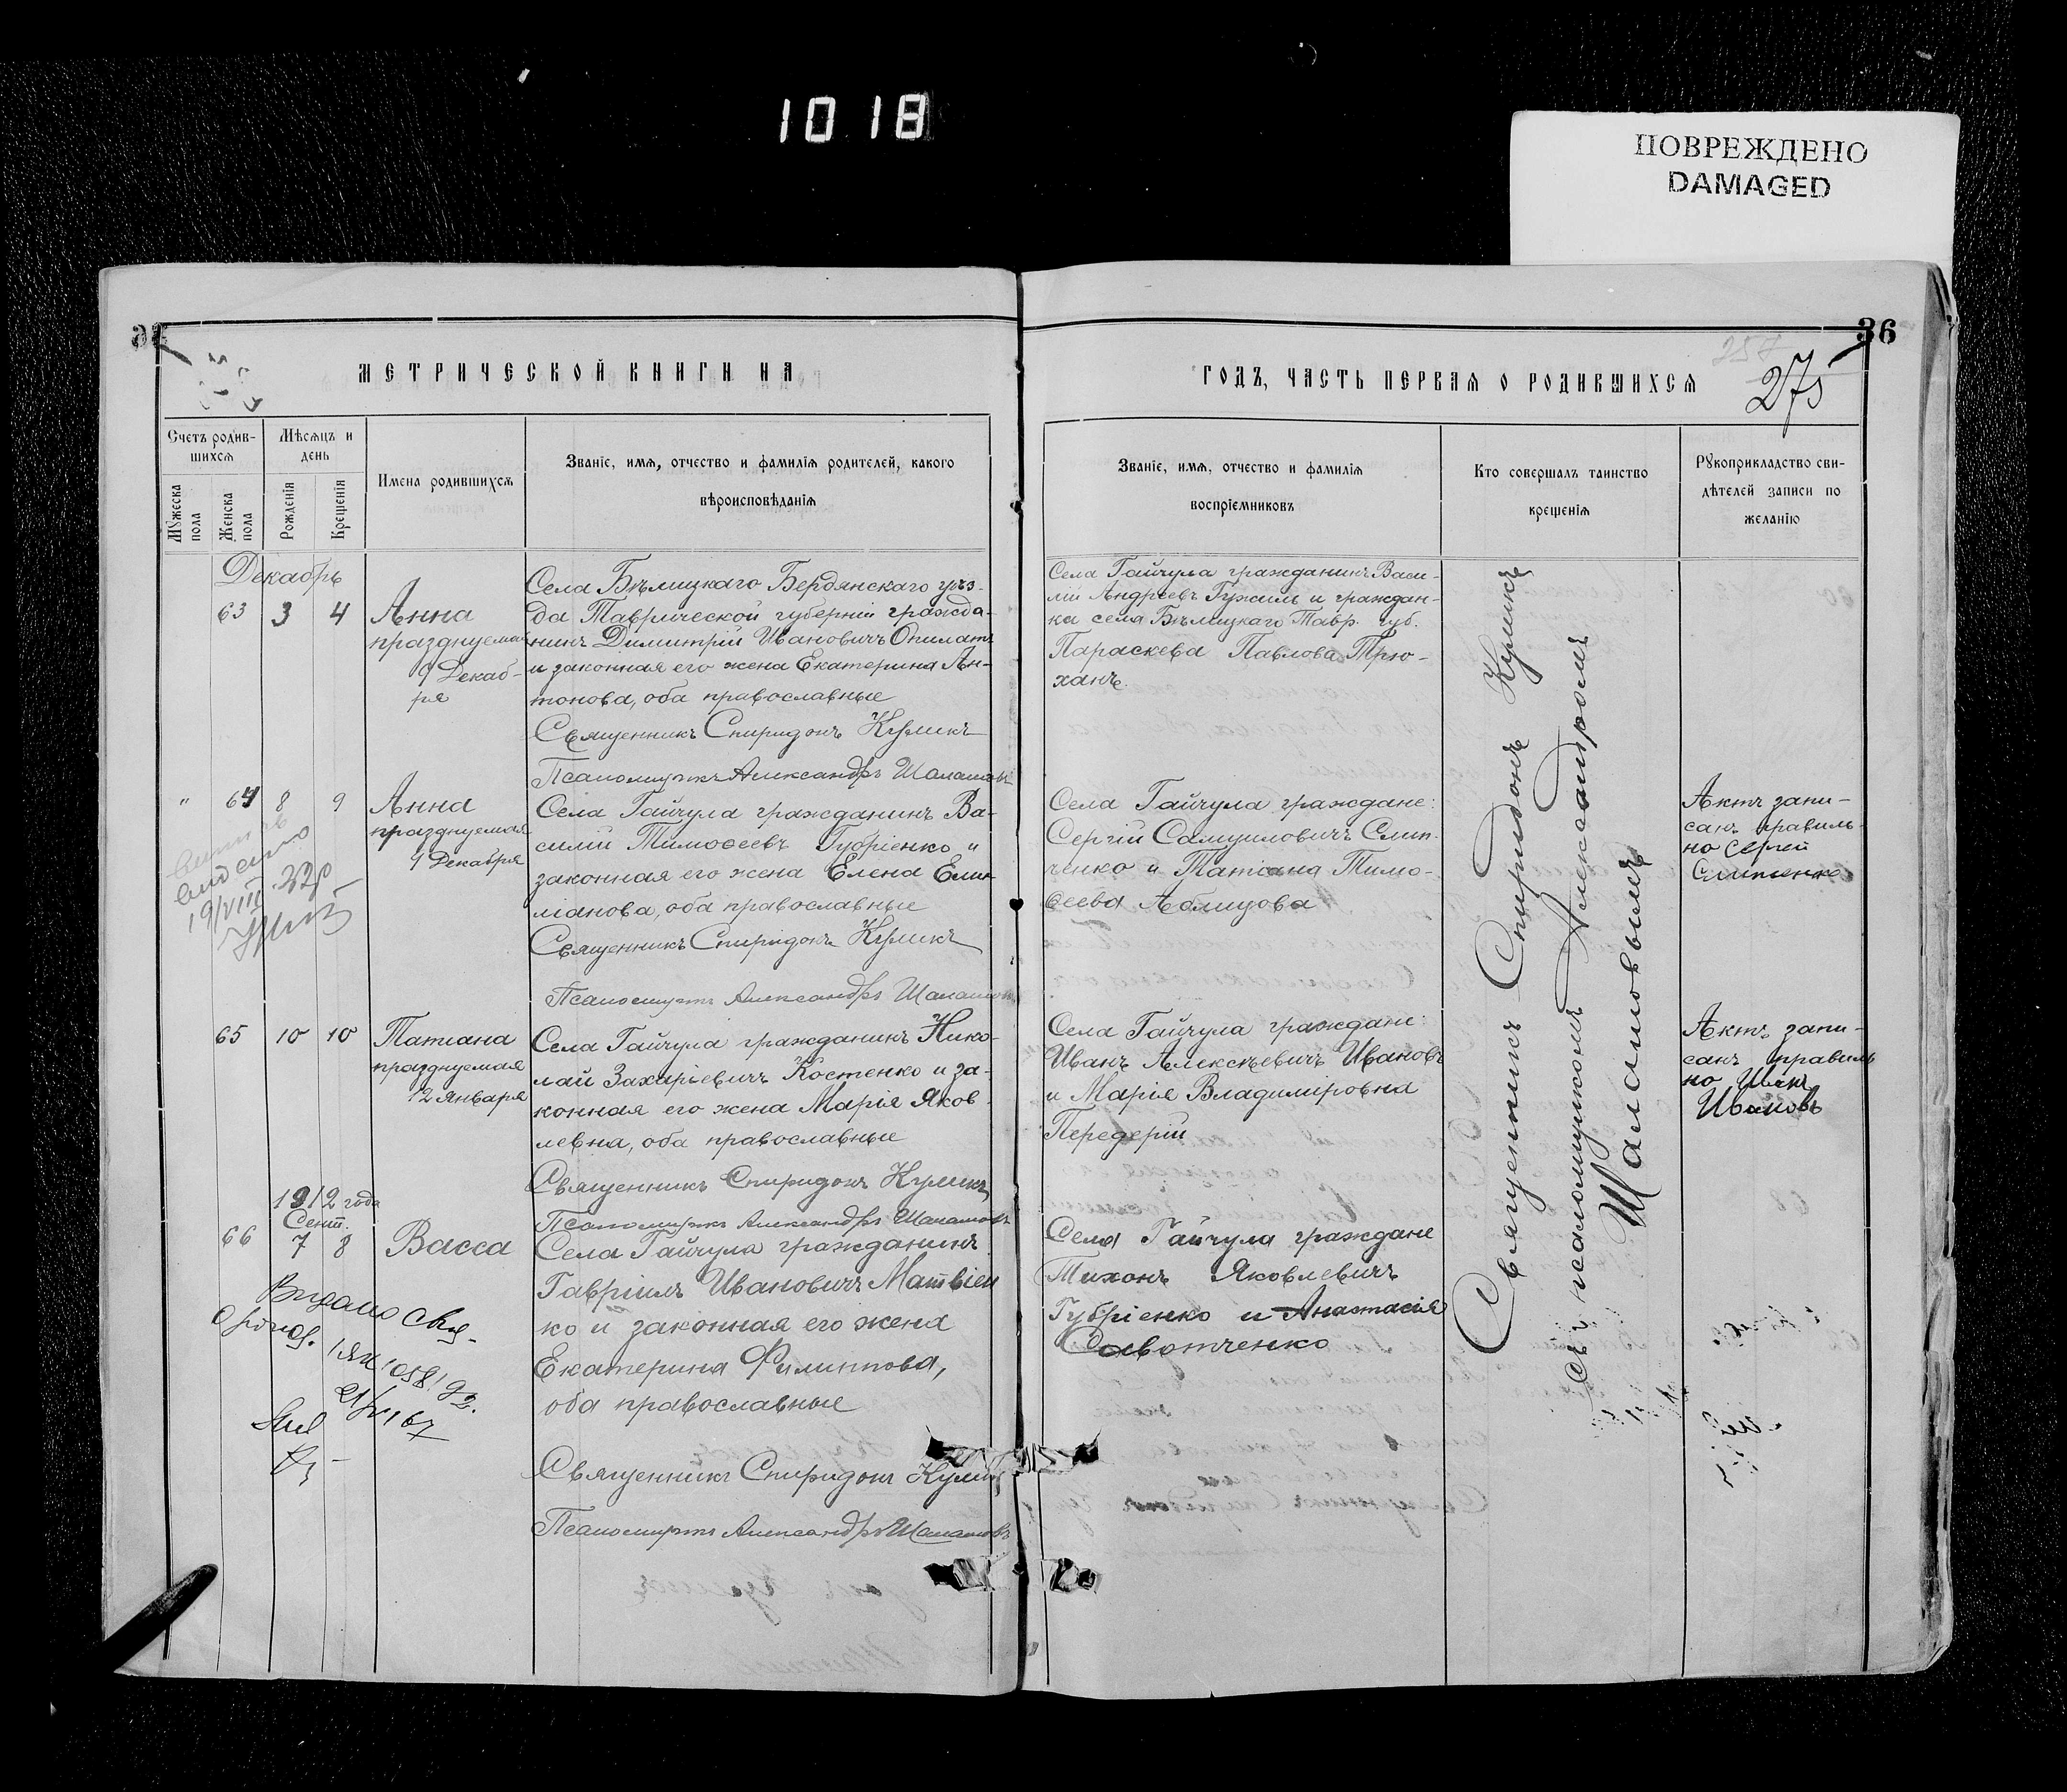 1018
ПОВРЕЖДЕНО
DAMAGED
36
МЕТРИЧЕСКОЙ КНИГИ НА
ГОДЪ, ЧАСТЬ ПЕРВАЯ О РОДИВШИХСЯ
275
Счетъ родив-
шихся
Мужеска
пола
Женска
пола
Мѣсяцъ и
день
Рожденія
Крещенія
Имена родившихся
Званіе, имя, отчество и фамилія родителей, какого
вѣроисповѣданія
Званіе, имя, отчество и фамилія
воспріемниковъ
Кто совершалъ таинство
крещенія
Рукоприкладство сви-
дѣтелей записи по
желанію
Декабрь
63 3 4
Анна
празднуемая
9 Декаб-
ря
Села Бѣлицкаго Бердянскаго уѣз-
да Таврической губерніи гражда-
нинъ Димитрій Ивановичъ Опилатъ
и законная его жена Екатерина Ан-
тонова, оба православные
Священникъ Спиридонъ Куликъ
Псаломщикъ Александръ Шаламовъ
Села Гайчула гражданинъ Васи-
лій Андреевъ Гужиль и граждан-
ка села Бѣлицкаго Тавр. губ.
Параскева Павлова Трю-
ханъ.
" 64 8 9
Анна
празднуемая
9 Декабря
Села Гайчула гражданинъ Ва-
силій Тимоѳеевъ Губріенко и
законная его жена Елена Емил-
ліанова, оба православные
Священникъ Спиридонъ Куликъ
Псаломщикъ Александръ Шаламовъ
Села Гайчула граждане:
Сергій Самуиловичъ Слип-
ченко и Татіана Тимо-
ѳеева Аблицова
Актъ запи-
санъ правиль-
но Сергей
Слипченко
19/VIII 32р
65 10 10
Татіана
празднуемая
12 Января
Села Гайчула гражданинъ Нико-
лай Захаріевичъ Костенко и за-
конная его жена Марія Яков-
левна, оба православные
Священникъ Спиридонъ Куликъ
Псаломщикъ Александръ Шаламовъ
Села Гайчула граждане:
Иванъ Алексѣевичъ Ивановъ
и Марія Владиміровна
Передерій
Актъ запи-
санъ правиль
но Иванъ
Ивановъ
1912 года
Сент.
66 7 8
Васса
Села Гайчула гражданинъ
Гавріилъ Ивановичъ Матвіен
ко и законная его жена
Екатерина Филиппова,
оба православные
Священникъ Спиридонъ Куликъ
Псаломщикъ Александръ Шаламовъ
Села Гайчула граждане
Тихонъ Яковлевичъ
Губріенко и Анастасія
Савотченко
Видано свід-
21/VI 67
Священникъ Спиридонъ Куликъ
съ псаломщикомъ Александромъ
Шаламовымъ